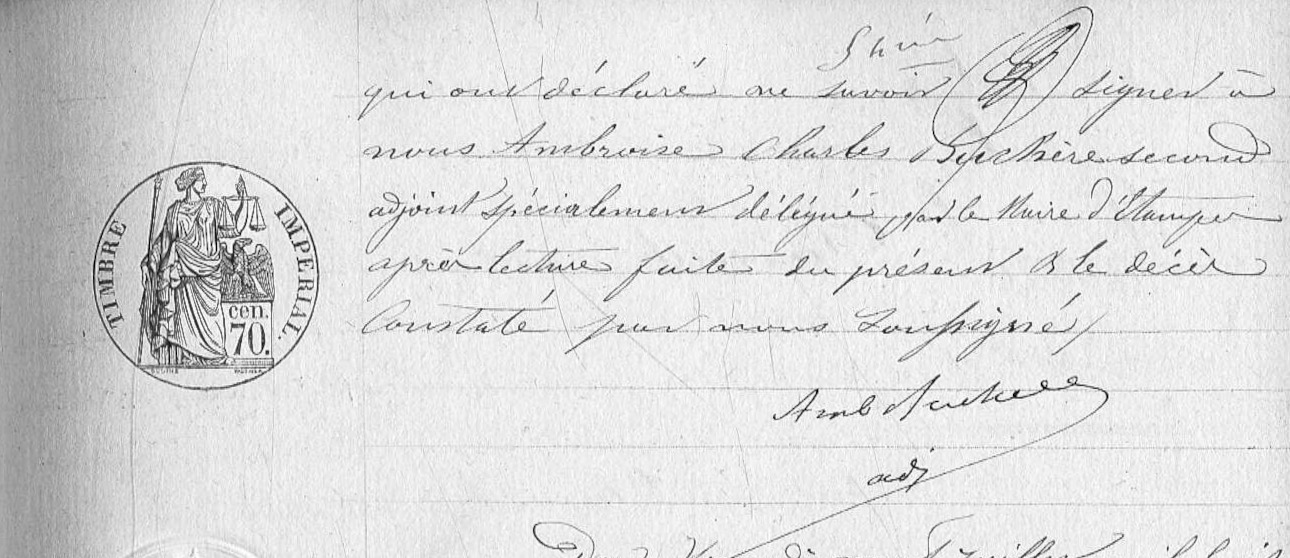 qui ont déclaré ne savoir signer à
nous Ambroise Charles Buchère second
adjoint spécialement délégué par le Maire d'Etampes
après lecture faite du présent & le décès
Constaté par nous Soussigné
TIMBRE IMPERIAL.
cen.
70.
Amb Buchere
adj